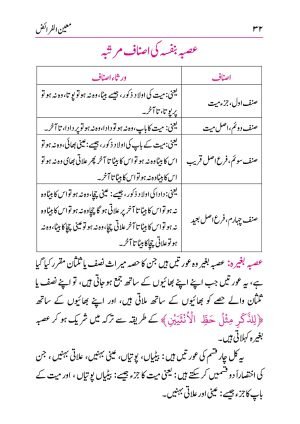 ۳۲ معین الفرائض
عصبہ بنفسہ کی اصناف مرتبہ
اصناف ورثاء اصناف
صنف اول، جزءِ میت
یعنی: میت کی اولاد ذکور، جیسے بیٹا، وہ نہ ہو تو پوتا، وہ نہ ہو تو
پرپوتا، تا آخر۔
صنف دوئم، اصل میت
یعنی: میت کا باپ، وہ نہ ہو تو دادا، وہ نہ ہو تو پردادا، تا آخر۔
صنف سوئم، فرع اصل قریب
یعنی: میت کے باپ کی اولاد ذکور، جیسے: عینی بھائی، وہ نہ ہو
تو اس کا بیٹا وہ نہ ہو تو اس کا بیٹا تا آخر پھر علاتی بھائی وہ نہ ہو
تو اس کا بیٹا وہ نہ ہو تو اس کا بیٹا تا آخر۔
صنف چہارم، فرع اصل بعید
یعنی: دادا کی اولاد ذکور، جیسے: عینی چچا، وہ نہ ہو تو اس کا بیٹا وہ
نہ ہو تو اس کا بیٹا تا آخر پر علاتی چچا وہ نہ ہو تو اس کا بیٹا وہ نہ
ہو تو اس کا بیٹا تا آخر
علاتی چچا وہ نہ ہو تو اس کا بیٹا تا آخر۔
عصبہ بغیرہ: عصبہ بغیرہ وہ عورتیں ہیں جن کا حصہ میراث نصف یا ثلثان مقرر کیا گیا
ہے، یہ عورتیں جب اپنے اپنے بھائیوں کے ساتھ جمع ہو جاتی ہیں، تو اپنے نصف یا
ثلثان والے حصے کو بھائیوں کے ساتھ ملاتی ہیں، اور اپنے اپنے بھائیوں کے ساتھ
﴿لِلذَّكَرِ مِثْلُ حَظِّ الْأُنْثَيَيْنِ﴾ کے طریقہ سے ترکہ میں شریک ہو کر عصبہ
بغیرہ کہلاتی ہیں۔
یہ کل چار قسم کی عورتیں ہیں: بیٹیاں، پوتیاں، عینی بہنیں، علاتی بہنیں، جن
کی اختصاراً دو قسمیں کر سکتے ہیں: یعنی میت کا جزء جیسے: بیٹیاں پوتیاں، اور میت کے
باپ کا جزء جیسے: عینی اور علاتی بہنیں۔